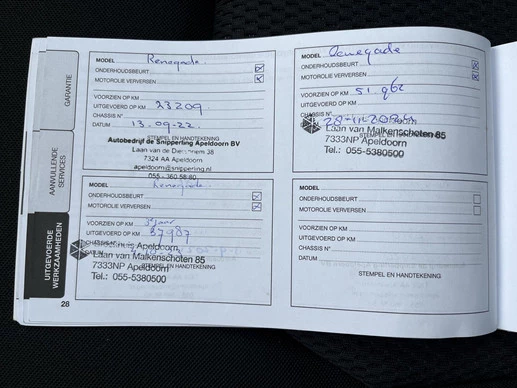 GARANTIE
AANVULLENDE
SERVICES
UITGEVOERDE
WERKZAAMHEDEN
MODEL Renegade
ONDERHOUDSBEURT
MOTOROLIE VERVERSEN
VOORZIEN OP KM
UITGEVOERD OP KM 23209
CHASSIS N°
DATUM 13-09-22
STEMPEL EN HANDTEKENING
Autobedrijf de Snipperling Apeldoorn BV
Laan van de 38
7324 AA Apeldoorn
apeldoorn@snipperling.nl
055 - 360 58 60
MODEL Renegade
ONDERHOUDSBEURT
MOTOROLIE VERVERSEN
VOORZIEN OP KM
UITGEVOERD OP KM 37987
CHASSIS N°
Apeldoorn
Laan van Malkenschoten 85
7333NP Apeldoorn
STEMPEL EN HANDTEKENING
Tel.: 055-5380500
28
MODEL Renegade
ONDERHOUDSBEURT
MOTOROLIE VERVERSEN
VOORZIEN OP KM
UITGEVOERD OP KM 51.962
CHASSIS N°
Laan van Malkenschoten 85
7333NP Apeldoorn
STEMPEL EN HANDTEKENING
Tel.: 055-5380500
MODEL
ONDERHOUDSBEURT
MOTOROLIE VERVERSEN
VOORZIEN OP KM
UITGEVOERD OP KM
CHASSIS N°
DATUM
STEMPEL EN HANDTEKENING